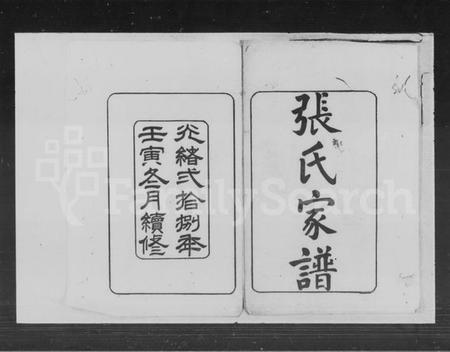 張氏家譜
光緒弍拾捌年
壬寅冬月續修
FamilySearch